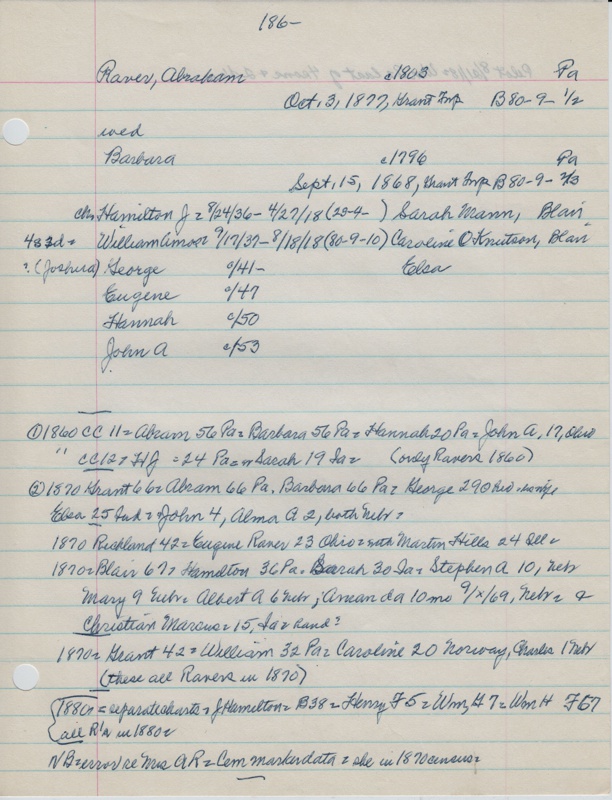 186-
Raver, Abraham c1803 Pa
Oct. 3, 1877, Grant Imp B80-9-1/2
wed
Barbara c1796 Pa
Sept. 15, 1868, Grant Imp B80-9-2/3
chn Hamilton J = 8/24/36 - 4/27/18 (23-4- ) Sarah Mann, Blair
William Amos = 9/17/37 - 8/18/18 (80-9-10) Caroline O Knutson, Blair
? (Joshua) George c/41- Elsa
Eugene c/47
Hannah c/50
John A c/53
① 1860 CC 11 = Abram 56 Pa = Barbara 56 Pa = Hannah 20 Pa = John A, 17, Ohio
" CC12 = HJ = 24 Pa = Sarah 19 Ia = (only Ravers 1860)
② 1870 Grant 66 = Abram 66 Pa. Barbara 66 Pa = George 29 Ohio = wife
Elsa 25 Ind = John 4, Alma A 2, both Nebr =
1870 Richland 42 = Eugene Raver 23 Ohio = with Martin Hills 24 Ill =
1870 = Blair 67 = Hamilton 36 Pa. Sarah 30 Ia = Stephen A 10, Nebr
Mary 9 Nebr = Albert A 6 Nebr; Amanda 10mo 9/x/69, Nebr = &
Christian Marcus = 15, Ia = hand?
1870 = Grant 42 = William 32 Pa = Caroline 20 Norway, Charles 1 Nebr
(these all Ravers in 1870)
1880 = separate charts = J Hamilton = B38 = Henry F5 = Wm, H 7 = Wm H F67
all R's in 1880 =
NB = error re Mrs AR = Cem marker data = she in 1870 census =